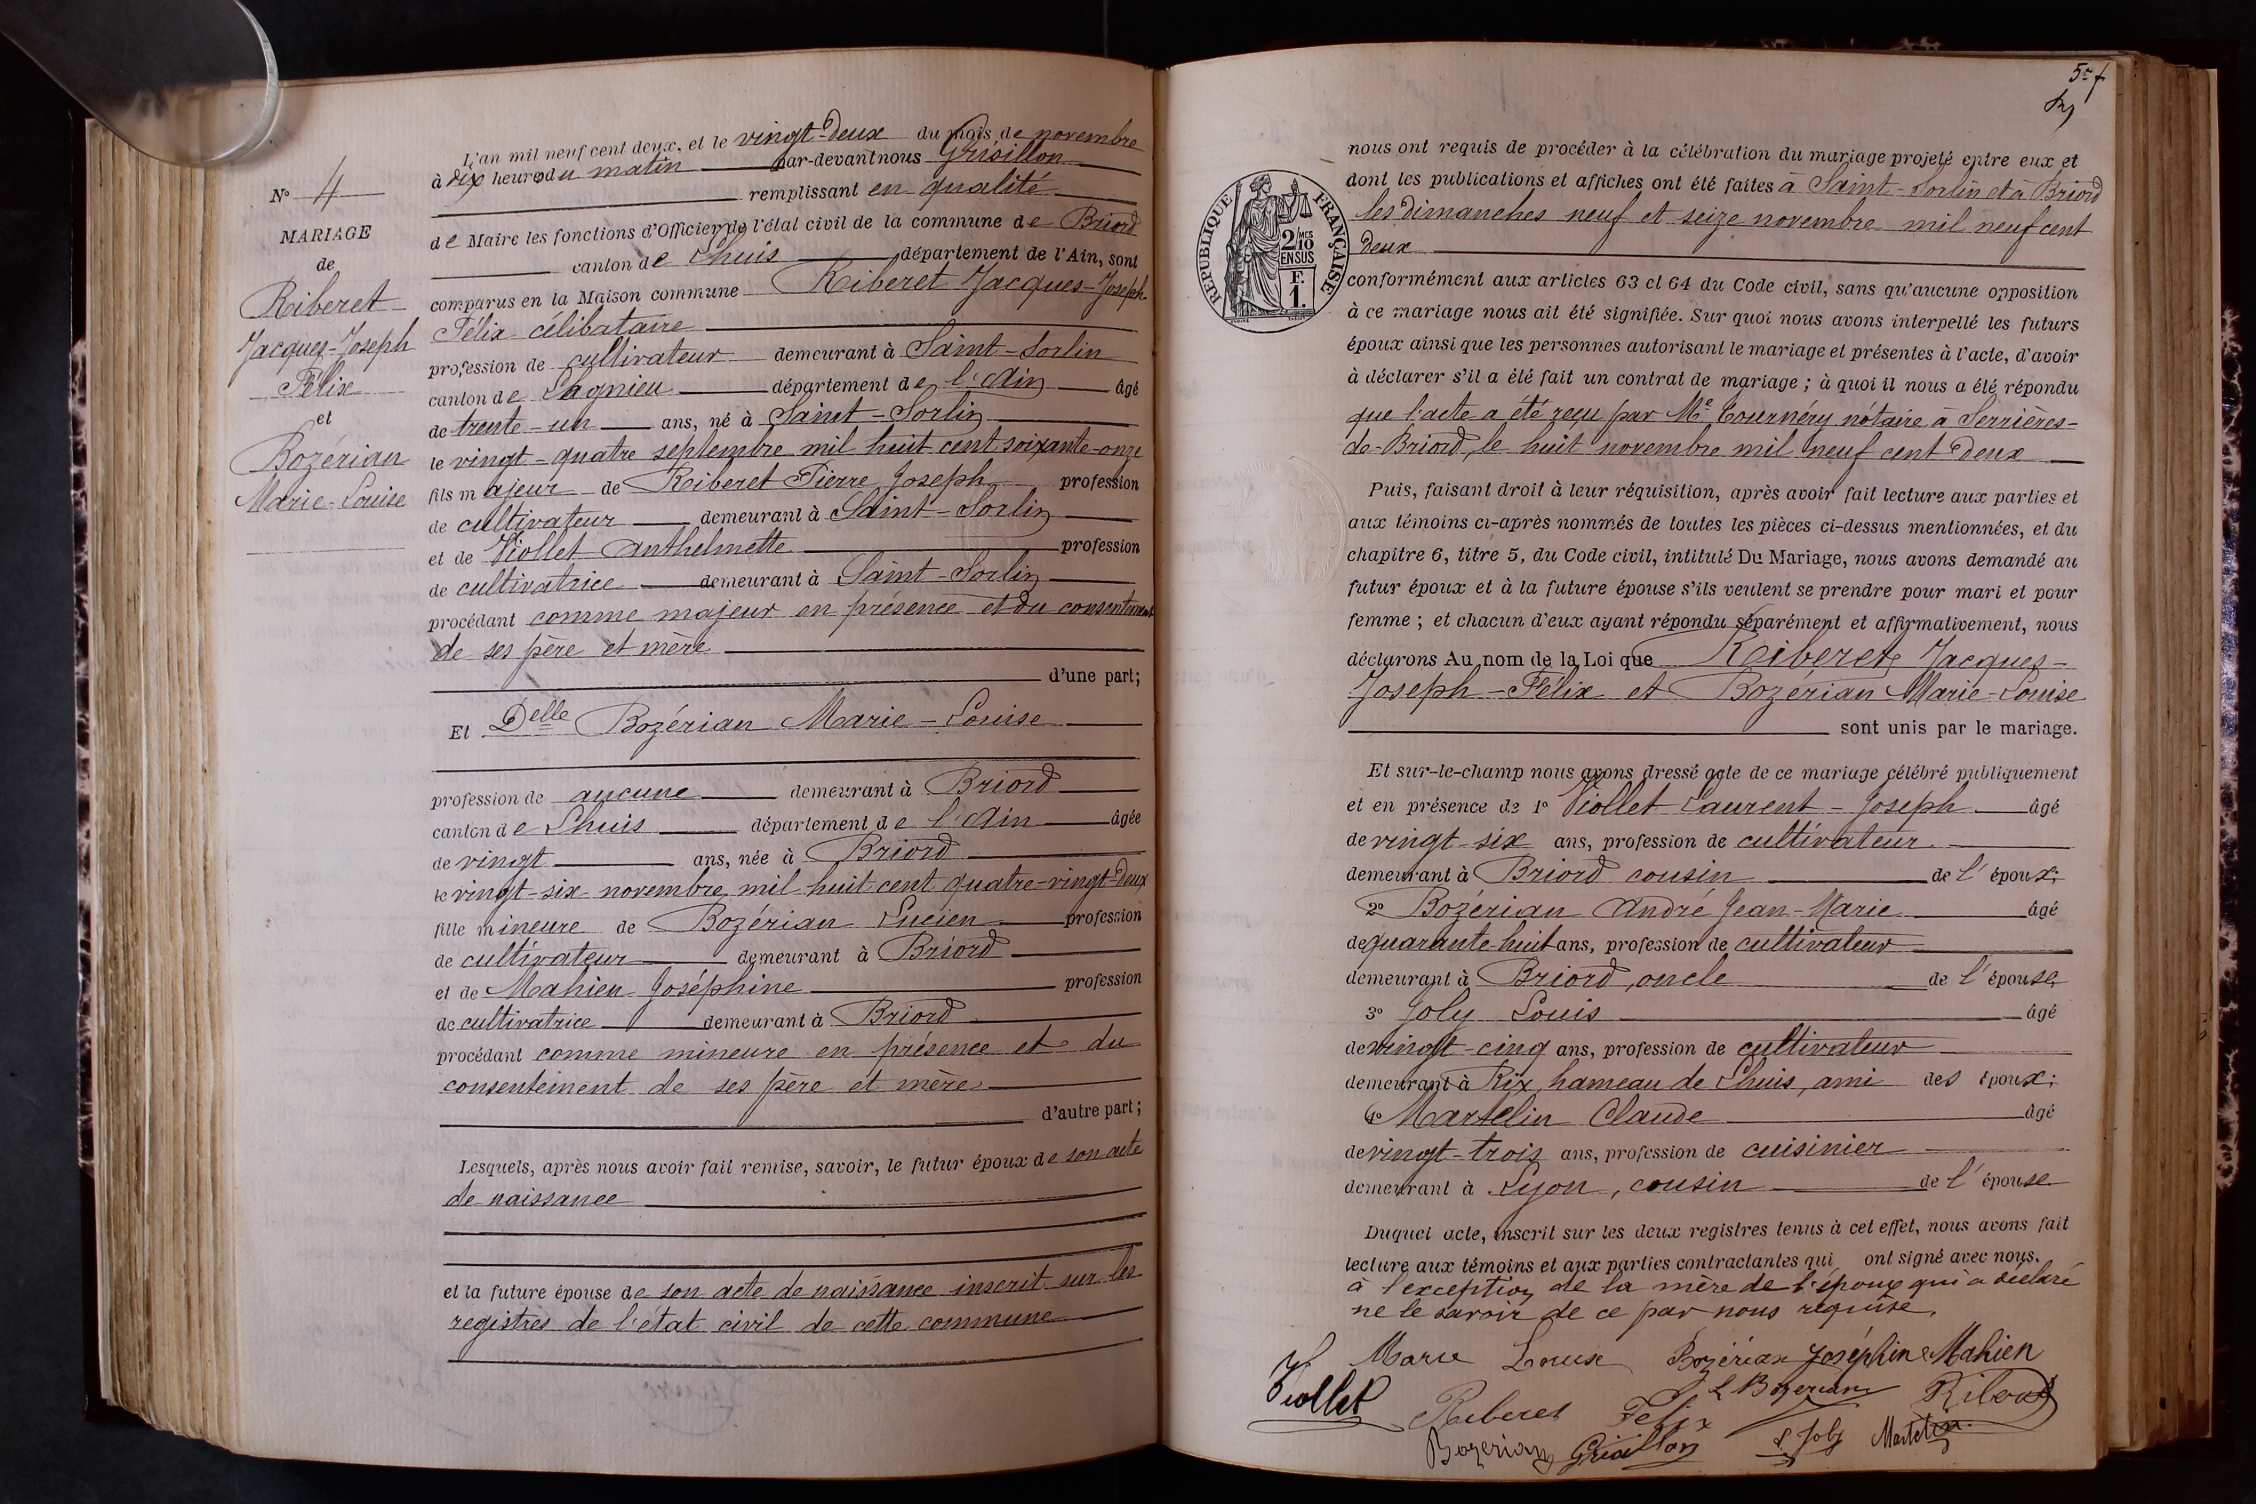 L'an mil neuf cent deux, et le vingt-deux du mois de novembre
à dix heures du matin par-devant nous Grisillon
remplissant en qualité
de Maire les fonctions d'Officier de l'état civil de la commune de Briord
canton de Lhuis département de l'Ain, sont
comparus en la Maison commune Riberet Jacques-Joseph
Félix célibataire
profession de cultivateur demeurant à Saint-Sorlin
canton de Lagnieu département de l'Ain âgé
de trente-un ans, né à Saint-Sorlin
le vingt-quatre septembre mil huit cent soixante-onze
fils majeur de Riberet Pierre Joseph profession
de cultivateur demeurant à Saint-Sorlin
et de Viollet Anthelmette profession
de cultivatrice demeurant à Saint-Sorlin
procédant comme majeur en présence et du consentement
de ses père et mère
d'une part;
Et Delle Bozérian Marie-Louise
profession de aucune demeurant à Briord
canton de Lhuis département de l'Ain âgée
de vingt ans, née à Briord
le vingt-six novembre mil huit cent quatre-vingt-deux
fille mineure de Bozérian Lucien profession
de cultivateur demeurant à Briord
et de Mahien Joséphine profession
de cultivatrice demeurant à Briord
procédant comme mineure en présence et du
consentement de ses père et mère
d'autre part;
Lesquels, après nous avoir fait remise, savoir, le futur époux de son acte
de naissance
et la future épouse de son acte de naissance inscrit sur les
registres de l'état civil de cette commune
N° 4
MARIAGE
de
Riberet
Jacques-Joseph
Félix
et
Bozérian
Marie-Louise
RÉPUBLIQUE FRANÇAISE
2/10 MES
EN SUS
F.
1.
nous ont requis de procéder à la célébration du mariage projeté entre eux et
dont les publications et affiches ont été faites à Saint-Sorlin et à Briord
les dimanches neuf et seize novembre mil neuf cent
deux
conformément aux articles 63 et 64 du Code civil, sans qu'aucune opposition
à ce mariage nous ait été signifiée. Sur quoi nous avons interpellé les futurs
époux ainsi que les personnes autorisant le mariage et présentes à l'acte, d'avoir
à déclarer s'il a été fait un contrat de mariage; à quoi il nous a été répondu
que l'acte a été reçu par Me Tournéry nótaire à Serrières-
de-Briord, le huit novembre mil neuf cent deux
Puis, faisant droit à leur réquisition, après avoir fait lecture aux parties et
aux témoins ci-après nommés de toutes les pièces ci-dessus mentionnées, et du
chapitre 6, titre 5, du Code civil, intitulé Du Mariage, nous avons demandé au
futur époux et à la future épouse s'ils veulent se prendre pour mari et pour
femme; et chacun d'eux ayant répondu séparément et affirmativement, nous
déclarons Au nom de la Loi que Riberet Jacques-
Joseph-Félix et Bozérian Marie-Louise
sont unis par le mariage.
Et sur-le-champ nous avons dressé acte de ce mariage célébré publiquement
et en présence de 1° Viollet Laurent-Joseph âgé
de vingt-six ans, profession de cultivateur
demeurant à Briord cousin de l'époux;
2° Bozérian André Jean-Marie âgé
de quarante-huit ans, profession de cultivateur
demeurant à Briord, oncle de l'épouse;
3° Joly Louis âgé
de vingt-cinq ans, profession de cultivateur
demeurant à Rix, hameau de Lhuis, ami des époux;
4° Martelin Claude âgé
de vingt-trois ans, profession de cuisinier
demeurant à Lyon, cousin de l'épouse
Duquel acte, inscrit sur les deux registres tenus à cet effet, nous avons fait
lecture aux témoins et aux parties contractantes qui ont signé avec nous.
à l'exception de la mère de l'époux qui a déclaré
ne le savoir de ce par nous requise.
Marie Louise Bozérian Joséphine Mahien
Viollet Riberet Félix L Bozerian
Bozerian Grisillon L. Joly Martelin